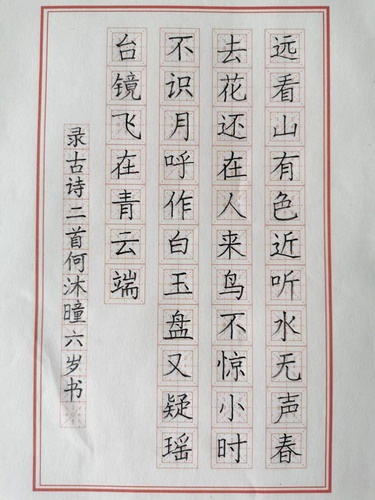 远看山有色近听水无声春
去花还在人来鸟不惊小时
不识月呼作白玉盘又疑瑶
台镜飞在青云端
录古诗二首何沐曈六岁书